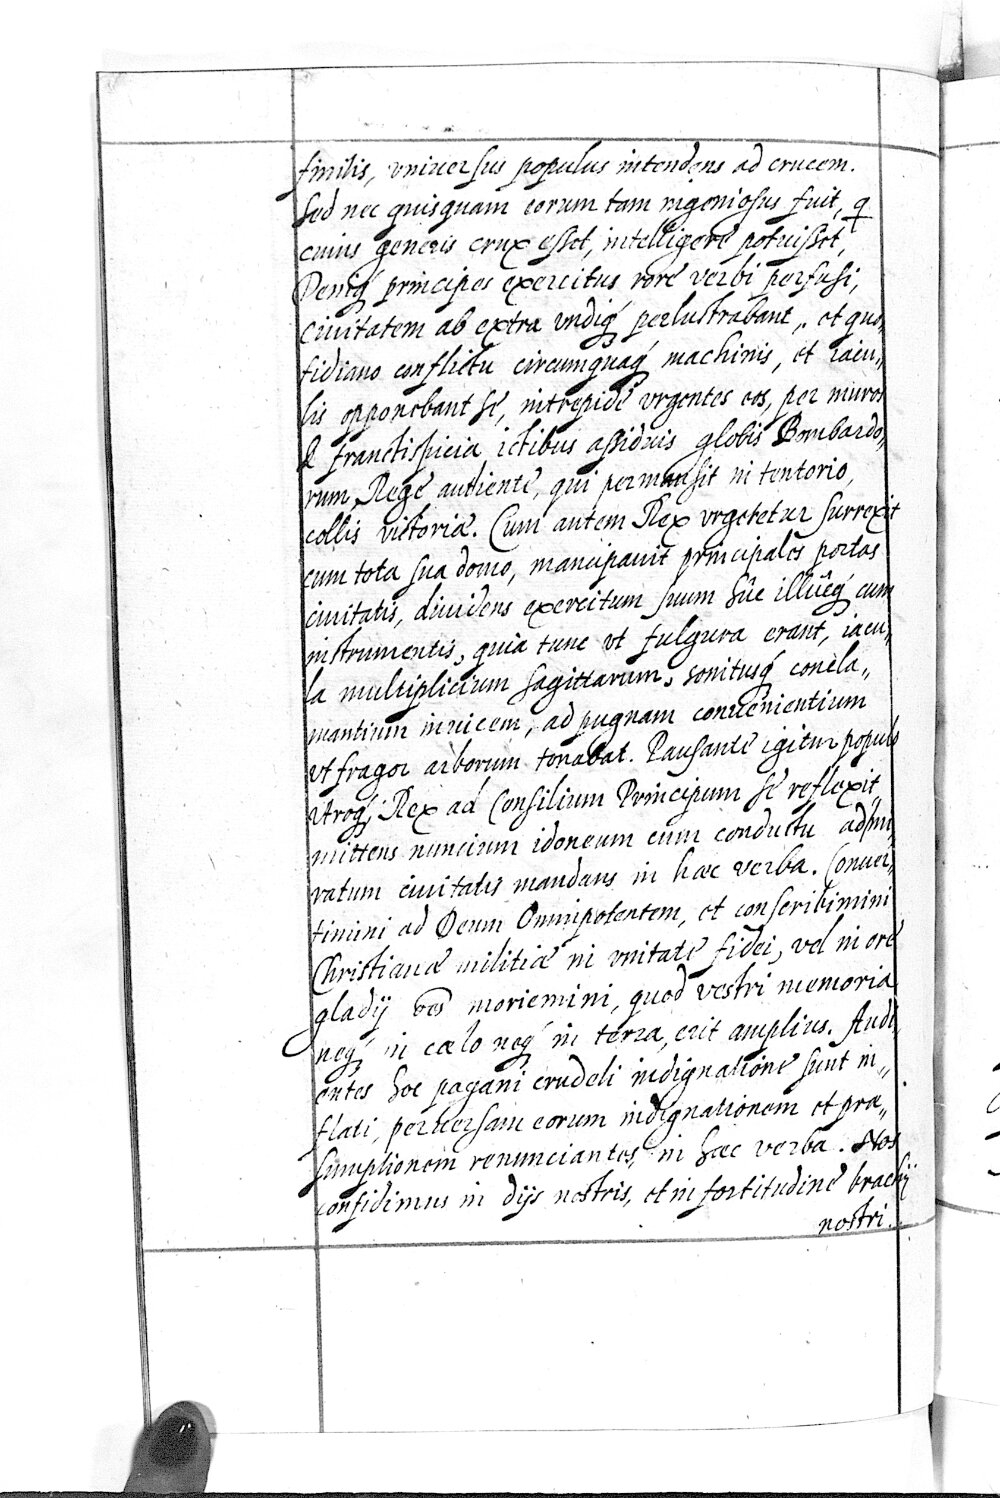 similis, vniuersus populus intendens ad crucem.
Sed nec quisquam eorum tam ingeniosus fuit, q
cuius generis crux esset, intelligere potuisset,
Deniq́ principes exercitus rore verbi perfusi,
Ciuitatem ab extra vndiq́ perlustrabant, et quo„
tidiano conflictu circumquaq́ machinis, et iacu„
lis opponebant se, intrepide vrgentes eos, per muros
& franctispicia ictibus assiduis globis Bombardo„
rum, Rege audiente, qui permansit in tentorio,
collis victoriæ. Cum autem Rex vrgeretur surrexit
cum tota sua domo, mancipauit principales portas
ciuitatis, diuidens exercitum suum hûc illûcq́ cum
instrumentis, quia tunc vt fulgura erant, iacu„
la multiplicium sagittarum, sonitusq́ concla„
mantium inuicem, ad pugnam conuenientium
vt fragor arborum tonabat. Pausante igitur populo
vtroq́, Rex ad Consilium Principum se reflexit,
mittens nuncium idoneum cum conductu ad mu„
ratum ciuitatis mandans in hæc verba. Conuer„
timini ad Deum Omnipotentem, et conscribimini
Christianæ militiæ in vnitate fidei, vel in ore
gladij oēs moriemini, quod vestri memoria
neq́ in cælo neq́ in terra, erit amplius. Audi
entes hoc pagani crudeli indignatione sunt in„
flati, peruersam eorum indignationem et præ„
sumptionem renunciantes, in hæc verba. Nos
confidimus in dijs nostris, et in fortitudine brachij
nostri.